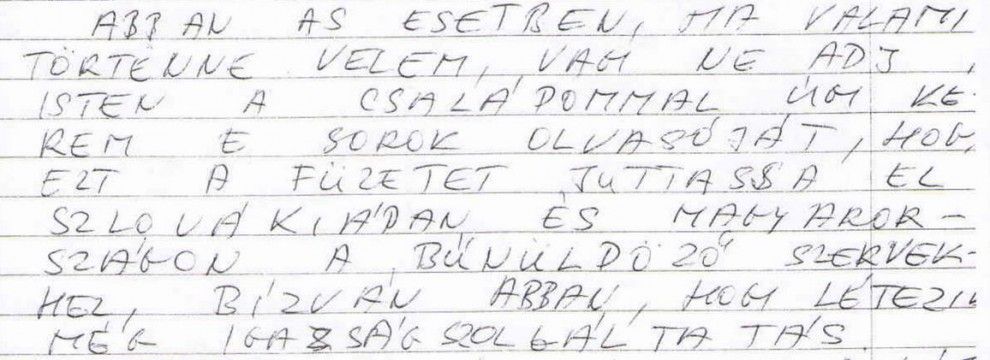 ABBAN AS ESETBEN, MA VALAMI
TÖRTÉNNE VELEM, VAGY NE ADJ,
ISTEN A CSALÁDOMMAL ÚGY KÉ-
REM E SOROK OLVASÓJÁT, HOGY
EZT A FÜZETET JUTTASSA EL
SZLOVÁKIÁBAN ÉS MAGYAROR-
SZÁGON A BŰNÜLDÖZŐ SZERVEK-
HEZ, BÍZVÁN ABBAN, HOGY LÉTEZIK
MÉG IGAZSÁGSZOLGÁLTATÁS.